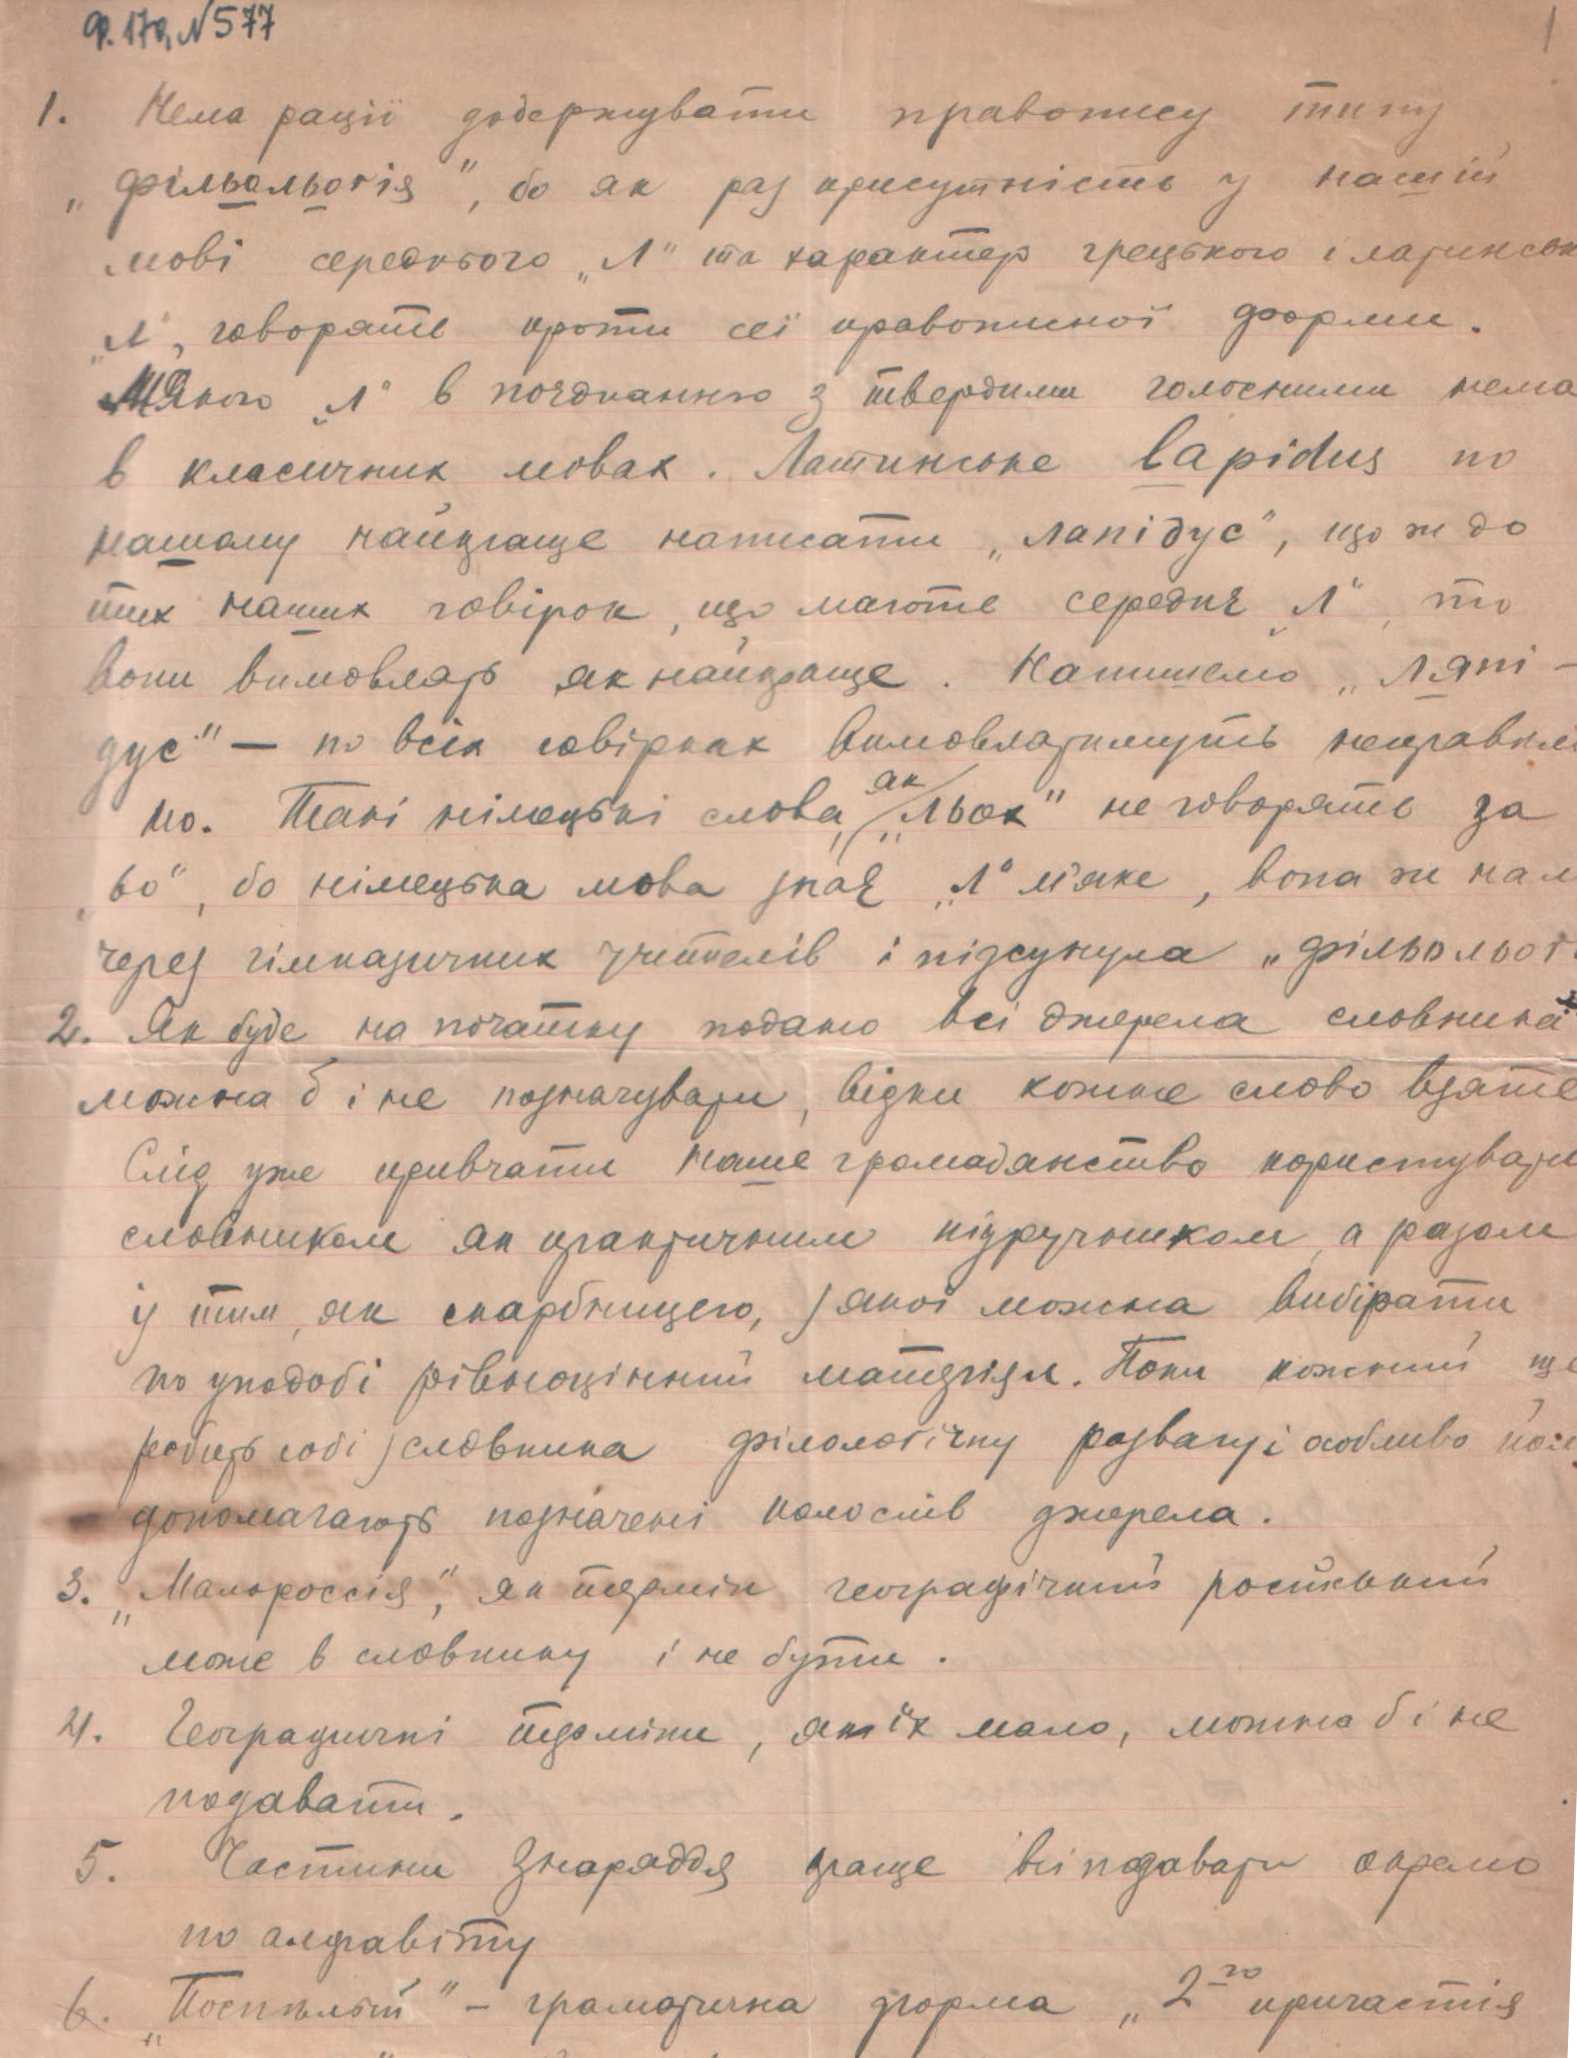 Ф. 170, № 577
1
1. Нема рації додержувати правопису типу
„фільольоґія", бо як раз присутність у нашій
мові середнього „Л" та характер грецького і латинськ
„Л", говорять проти сеї правописної форми.
Мякого „Л" в поєднанню з твердими голосними нема
в класичних мовах. Латинське lapidus по
нашому найкраще написати „лапідус", що ж до
тих наших говірок, що мають середнє „Л", то
вони вимовлять якнайкраще. Напишемо „Ляпі-
дус" — по всіх говірках вимовлятимуть неправиль
но. Такі німецькі слова, як „льох" не говорять за
„ьо", бо німецька мова знає „Л" мяке, вона ж нам
через гімназичних учителів і підсунула „фільольоґ.
2. Як буде на початку подано всі джерела словника,
можна б і не позначувати, відки кожне слово взяте
Слід уже привчати наше громадянство користувати
словником як практичним підручником, а разом
із тим, як скарбницею, з якої можна вибірати
по уподобі рівноцінний матеріял. Поки кожний ще
робить собі з словника філологічну розвагу і особливо
допомагають позначені колослів джерела.
3. „Малороссія", як термін географічний російський
може в словнику і не бути.
4. Географичні терміни, як їх мало, можна б і не
подавати.
5. Частини знаряддя краще всі подавати окремо
по алфавіту
6. „Поспѣлый" – граматична форма „2го причастія